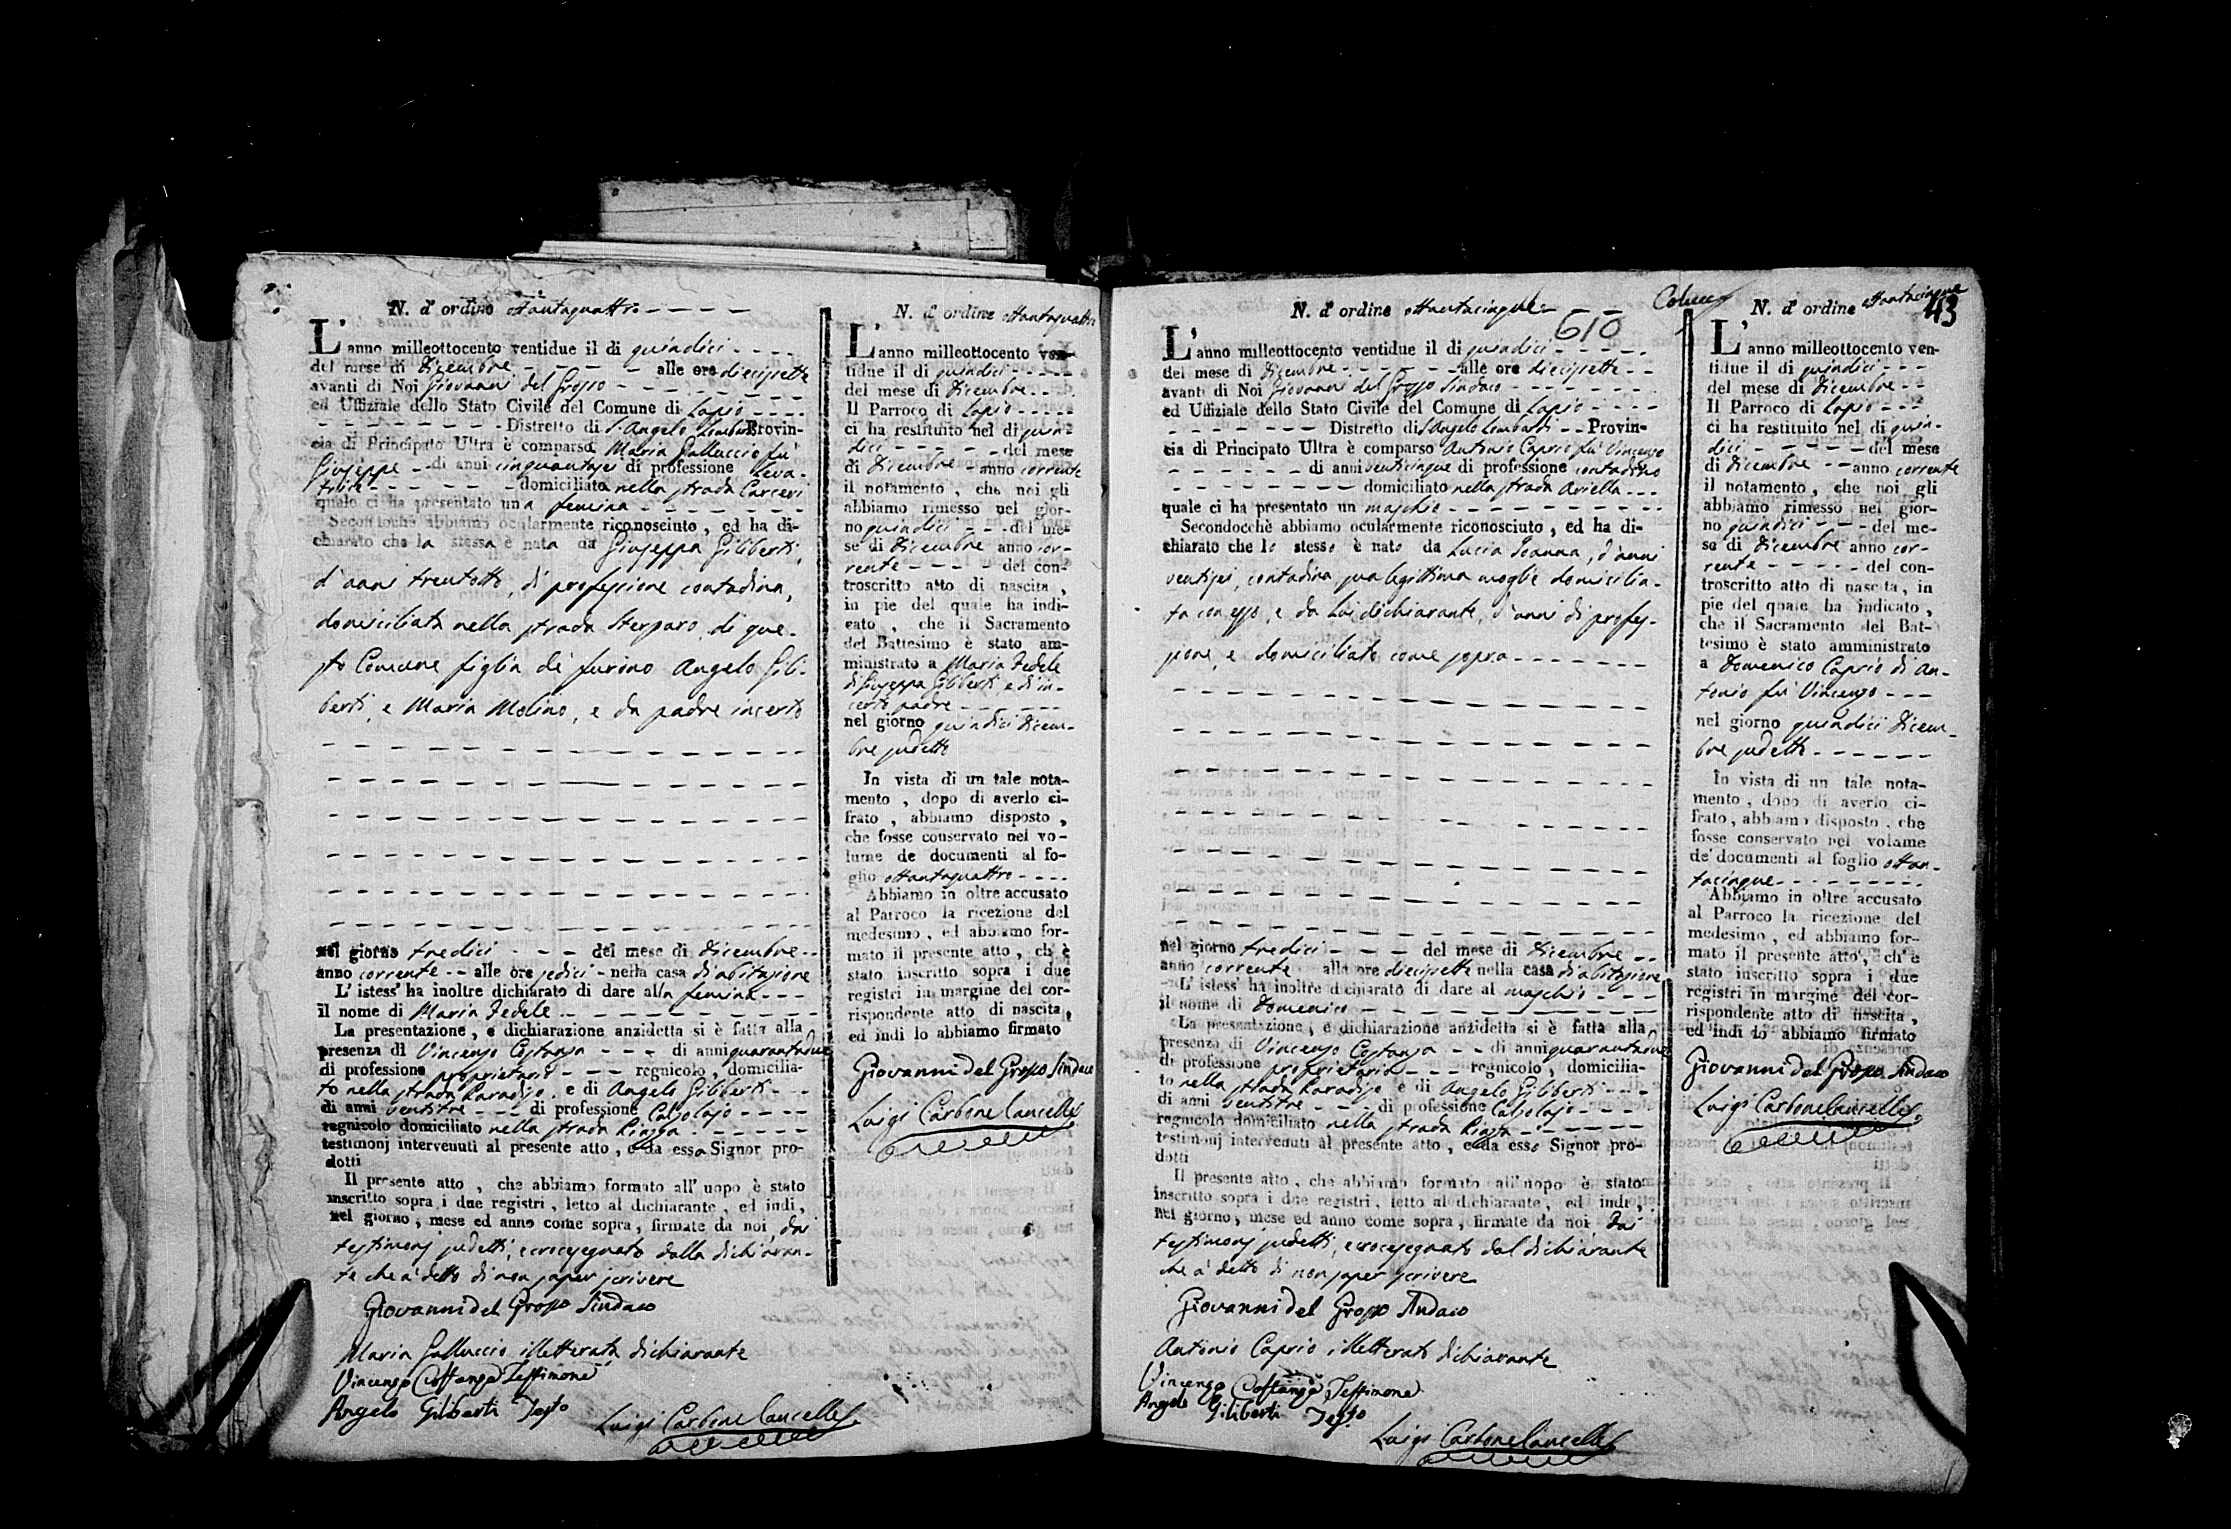 N. d' ordine ottantaquattro
L' anno milleottocento ventidue il di quindici
del mese di Dicembre alle ore diecisette
avanti di Noi Giovanni del Grosso
ed Uffiziale dello Stato Civile del Comune di Lapio
Distretto di S. Angelo Lombardi Provin-
cia di Principato Ultra è comparsa Maria Galluccio fu
Giuseppe di anni cinquantasei di professione Leva-
trice domiciliata nella strada Carceri
quale ci ha presentato una femina
Secondochè abbiamo ocularmente riconosciuto, ed ha di-
chiarato che la stessa è nata da Giuseppa Giliberti,
d'anni trentotto, di professione contadina,
domiciliata nella strada Sterparo, di que-
sto Comune figlia de' furono Angelo Gili-
berti, e Maria Molino, e da padre incerto
nel giorno tredici del mese di Dicembre
anno corrente alle ore sedici nella casa d'abitazione
L' istess' ha inoltre dichiarato di dare alla femina
il nome di Maria Fedele
La presentazione, e dichiarazione anzidetta si è fatta alla
presenza di Vincenzo Costanza di anni quarantadue
di professione proprietario regnicolo, domicilia-
to nella strada Paradiso, e di Angelo Giliberti
di anni ventitre di professione Calzolajo
regnicolo domiciliato nella strada Piazza
testimonj intervenuti al presente atto, e da essa Signor pro-
dotti
Il presente atto, che abbiamo formato all' uopo è stato
inscritto sopra i due registri, letto al dichiarante, ed indi,
nel giorno, mese ed anno come sopra, firmate da noi, dai
testimonj sudetti, e crocesegnato dalla dichiaran-
te che à detto di non saper scrivere
Giovanni del Grosso Sindaco
Maria Galluccio illetterata dichiarante
Vincenzo Costanza Testimone
Angelo Giliberti Testo
Luigi Carbone Cancelle
N. d' ordine ottantaquattro
L' anno milleottocento ven-
tidue il di quindici
del mese di Dicembre
Il Parroco di Lapio
ci ha restituito nel di quin-
dici del mese
di Dicembre anno corrente
il notamento, che noi gli
abbiamo rimesso nel gior-
no quindici del me-
se di Dicembre anno cor-
rente del con-
troscritto atto di nascita,
in pie del quale ha indi-
cato, che il Sacramento
del Battesimo è stato am-
ministrato a Maria Fedele
di Giuseppa Giliberti e d'in-
certo padre
nel giorno quindici Dicem-
bre sudetto
In vista di un tale nota-
mento, dopo di averlo ci-
frato, abbiamo disposto,
che fosse conservato nel vo-
lume de documenti al fo-
glio ottantaquattro
Abbiamo in oltre accusato
al Parroco la ricezione del
medesimo, ed abbiamo for-
mato il presente atto, ch'è
stato inscritto sopra i due
registri in margine del cor-
rispondente atto di nascita,
ed indi lo abbiamo firmato
Giovanni del Grosso Sindaco
Luigi Carbone Cancelle
N. d' ordine ottantacinque
610
L' anno milleottocento ventidue il di quindici
del mese di Dicembre alle ore diecisette
avanti di Noi Giovanni del Grosso Sindaco
ed Uffiziale dello Stato Civile del Comune di Lapio
Distretto di S. Angelo Lombardi Provin-
cia di Principato Ultra è comparso Antonio Caprio fu Vincenzo
di anni venticinque di professione contadino
domiciliato nella strada Aviella
quale ci ha presentato un maschio
Secondocchè abbiamo ocularmente riconosciuto, ed ha di-
chiarato che lo stesso è nato da Lucia Ioanna, d'anni
ventisei, contadina sua legittima moglie domicilia-
ta con esso, e da Lui dichiarante, d'anni di profes-
sione, e domiciliato come sopra
nel giorno tredici del mese di Dicembre
anno corrente alle ore diecisette nella casa d'abitazione
L' istess' ha inoltre dichiarato di dare al maschio
il nome di Domenico
La presentazione, e dichiarazione anzidetta si è fatta alla
presenza di Vincenzo Costanza di anni quarantadue
di professione proprietario regnicolo, domicilia-
to nella strada Paradiso e di Angelo Giliberti
di anni ventitre di professione Calzolajo
regnicolo domiciliato nella strada Piazza
testimonj intervenuti al presente atto, e da esso Signor pro-
dotti
Il presente atto, che abbiamo formato all' uopo è stato
inscritto sopra i due registri, letto al dichiarante, ed indi,
nel giorno, mese ed anno come sopra, firmate da noi dai
testimonj sudetti, e crocesegnato dal dichiarante
che à detto di non saper scrivere
Giovanni del Grosso Sindaco
Antonio Caprio illetterato dichiarante
Vincenzo Costanza Testimone
Angelo Giliberti Testo
Luigi Carbone Cancelle
N. d' ordine ottantacinque
43
L' anno milleottocento ven-
tidue il di quindici
del mese di Dicembre
Il Parroco di Lapio
ci ha restituito nel di quin-
dici del mese
di Dicembre anno corrente
il notamento, che noi gli
abbiamo rimesso nel gior-
no quindici del me-
se di Dicembre anno cor-
rente del con-
troscritto atto di nascita, in
pie del quale ha indicato,
che il Sacramento del Bat-
tesimo è stato amministrato
a Domenico Caprio di An-
tonio fu Vincenzo
nel giorno quindici Dicem-
bre sudetto
In vista di un tale nota-
mento, dopo di averlo ci-
frato, abbiamo disposto, che
fosse conservato nel volume
de' documenti al foglio ottan-
tacinque
Abbiamo in oltre accusato
al Parroco la ricezione del
medesimo, ed abbiamo for-
mato il presente atto, ch'è
stato inscritto sopra i due
registri in margine del cor-
rispondente atto di nascita,
ed indi lo abbiamo firmato
Giovanni del Grosso Sindaco
Luigi Carbone Cancelle